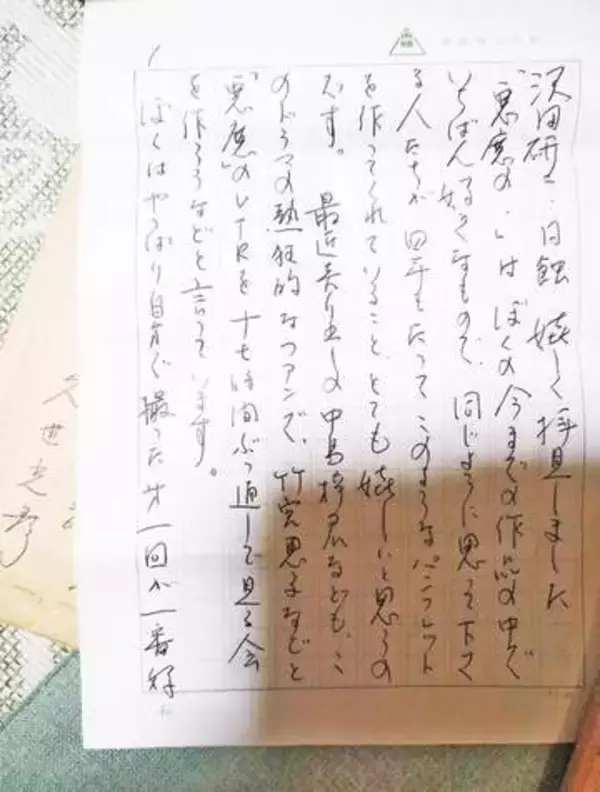 1
沢田研二・日蝕 嬉しく拝見しました
「悪魔の・・」は ぼくの今までの作品の中で
いちばん好きなもので、同じように思って下さ
る人たちが 四年もたって このようなパンフレット
を作ってくれていること、とても嬉しいと思うの
です。 最近売り出しの中島梓君なども、こ
のドラマの熱狂的なファンで、竹宮恵子などと
「悪魔」のVTRを十七時間ぶっ通しで見る会
を作ろうなどと言っています。
ぼくはやっぱり自分で撮った才一回が一番好
久世光彦